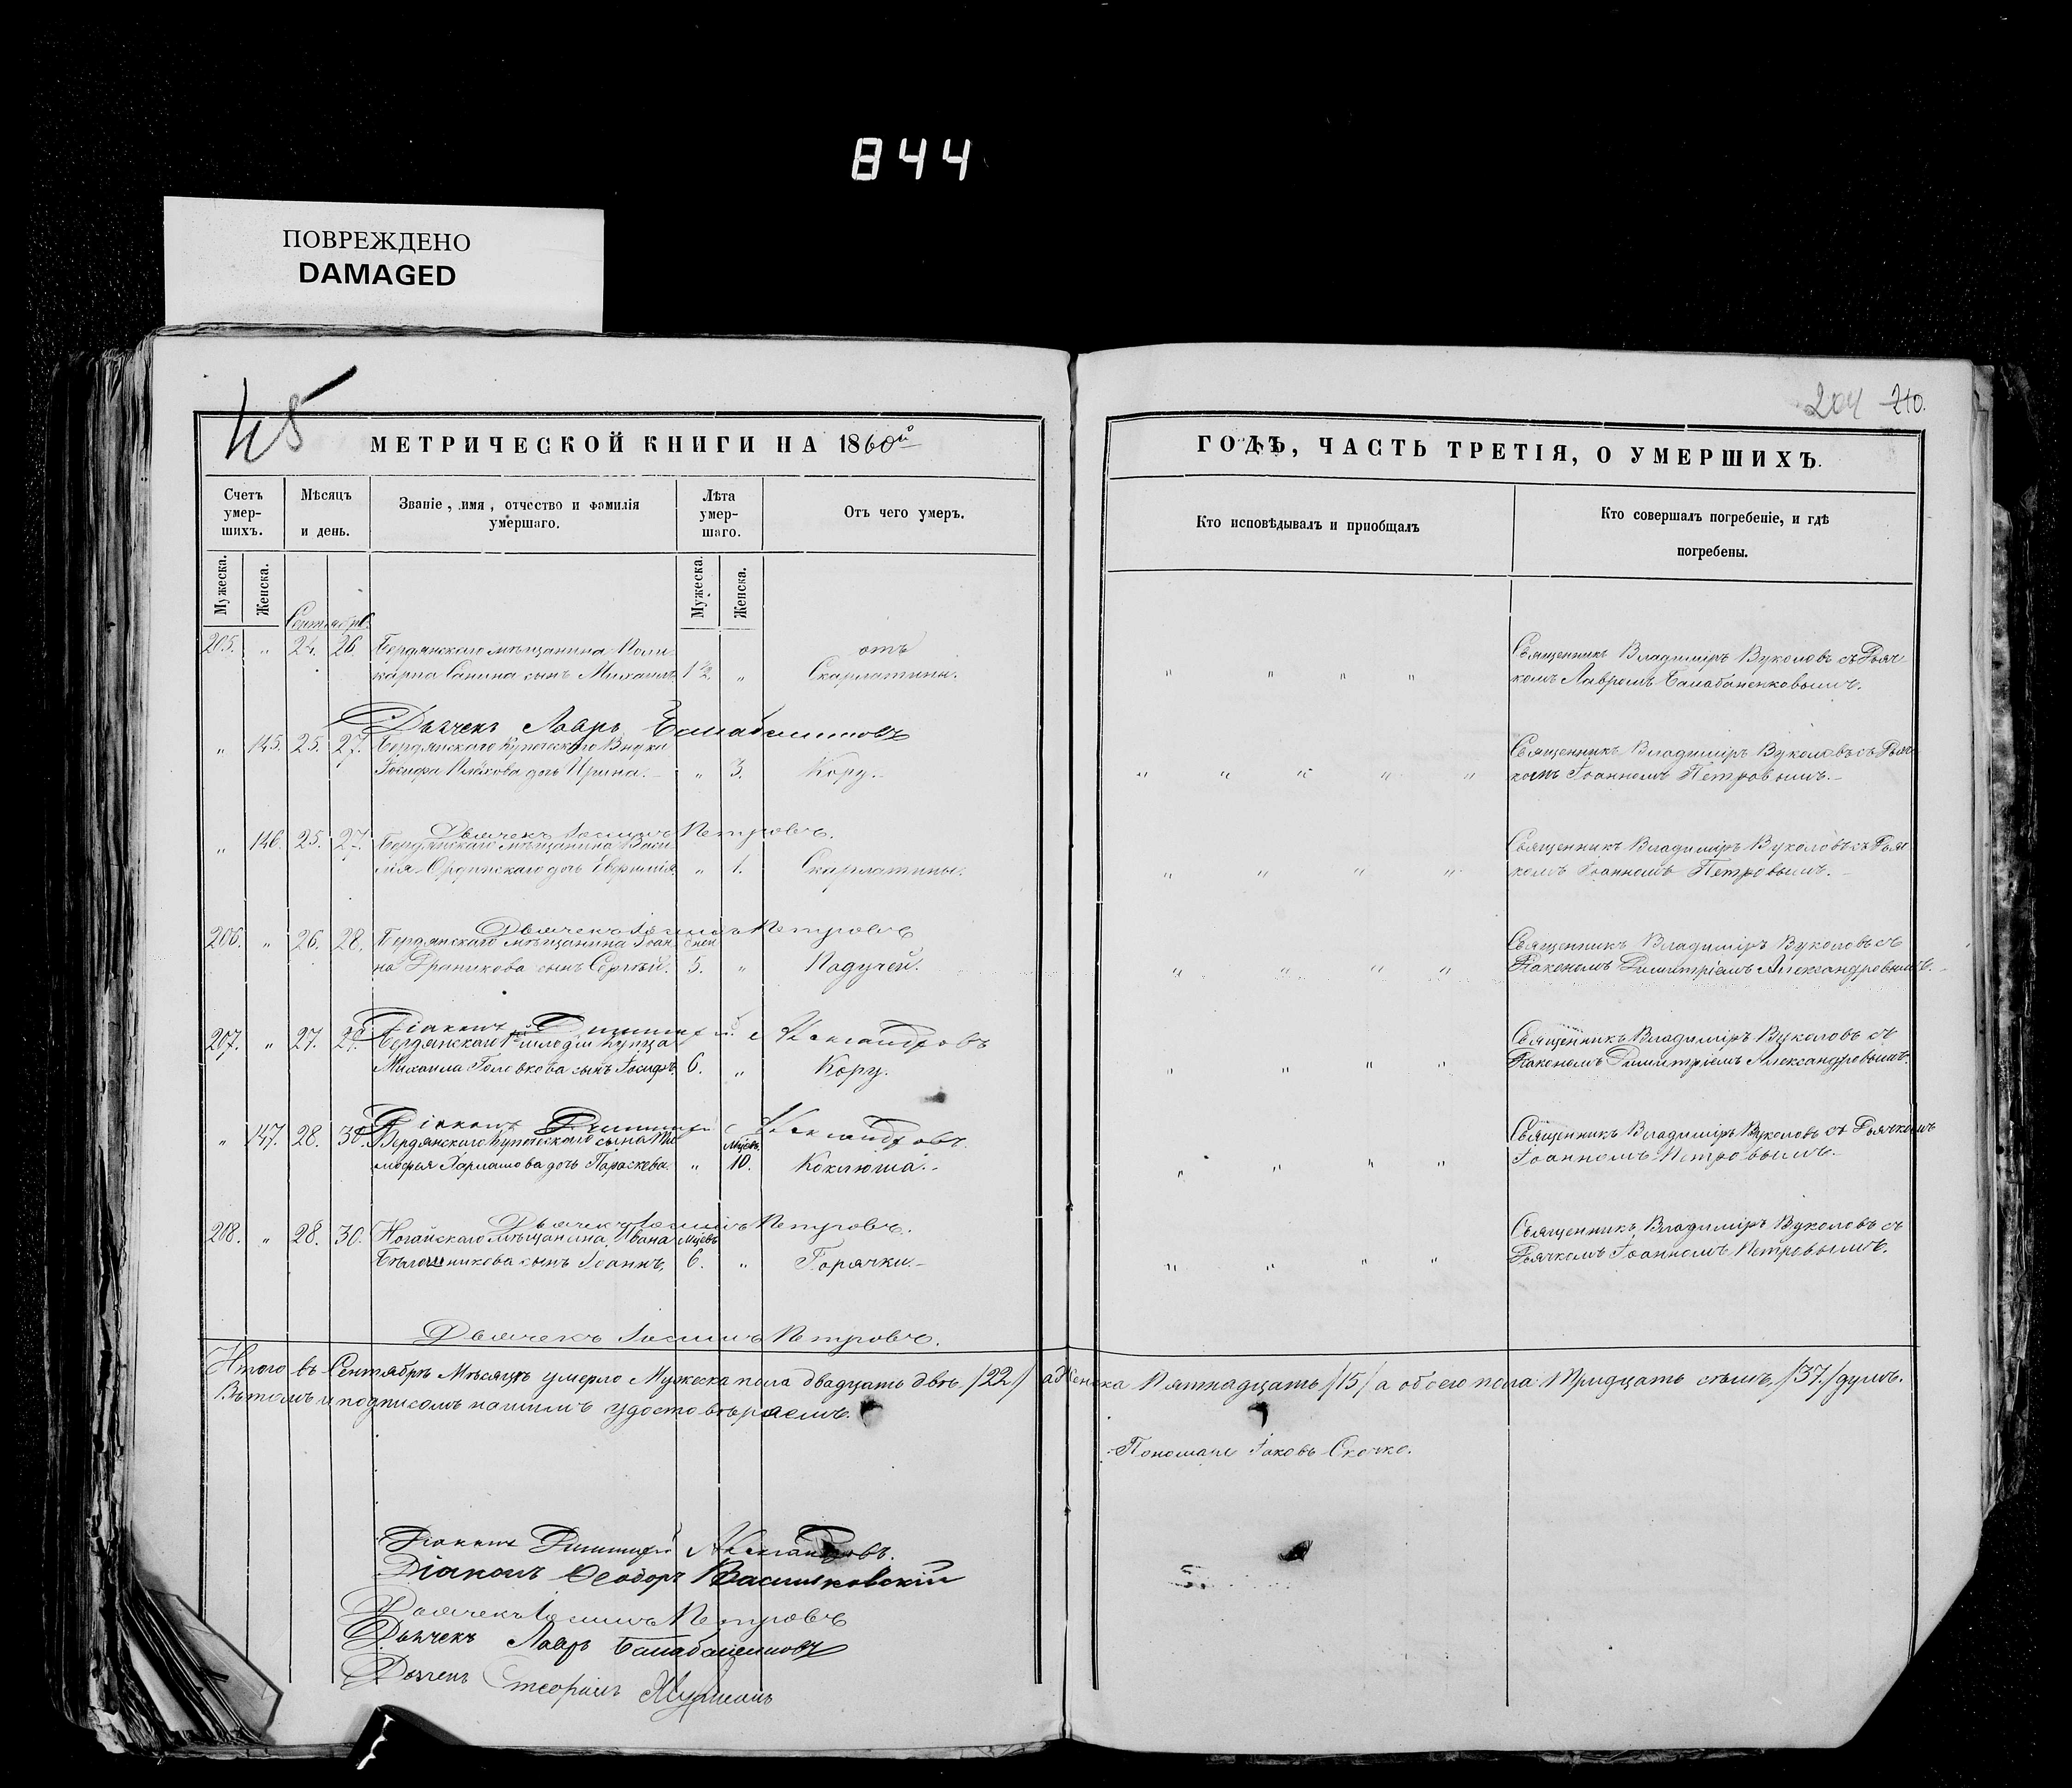 844
ПОВРЕЖДЕНО
DAMAGED
45
204 210.
МЕТРИЧЕСКОЙ КНИГИ НА 1860й
ГОДЪ, ЧАСТЬ ТРЕТІЯ, О УМЕРШИХЪ.
Счетъ умер-шихъ.
Мѣсяцъ и день.
Званіе, имя, отчество и фамилія умершаго.
Лѣта умер-шаго.
Отъ чего умеръ.
Кто исповѣдывалъ и пріобщалъ
Кто совершалъ погребеніе, и гдѣ погребены.
Мужеска. Женска.
Мужеска. Женска.
Сентябрь.
205. " 24. 26. Бердянскаго мѣщанина Поли- отъ Священникъ Владиміръ Вуколовъ съ Дьяч-
карпа Санина сынъ Михаилъ 1 1/2 " Скарлатины. " " " " комъ Лавромъ Балабаненковымъ.
Дьячекъ Лавръ Балабаненковъ
" 145. 25. 27. Бердянскаго Купеческаго Внука Священникъ Владиміръ Вуколовъ съ Дьяч-
Іосифа дочь Ирина. " 3. Кору. " " " " " комъ Іоанномъ Петровымъ.
Дьячекъ Іоаннъ Петровъ.
" 146. 25. 27. Бердянскаго мѣщанина Васи- Священникъ Владиміръ Вуколовъ съ Дьяч-
лія Ординскаго дочь Евфимія " 1. Скарлатины. " " " " комъ Іоанномъ Петровымъ.
Дьячекъ Іоаннъ Петровъ
206. " 26. 28. Бердянскаго мѣщанина Іоан- дней Священникъ Владиміръ Вуколовъ съ
на Драникова сынъ Сергій. 5. " Падучей. " " " " Діакономъ Димитріемъ Александровымъ.
Діаконъ Димитрій Александровъ
207. " 27. 29. Бердянскаго гильдіи купца Священникъ Владиміръ Вуколовъ съ
Михаила Головкова сынъ Іосифъ. 6. " Кору. " " " " Діакономъ Димитріемъ Александровымъ.
Діаконъ Димитрій Александровъ.
" 147. 28. 30. Бердянскаго Купеческаго сына Ти- Мцевъ. Священникъ Владиміръ Вуколовъ съ Дьячкомъ
мофея Харламова дочь Параскева. " 10. Коклюша. " " " " Іоанномъ Петровымъ.
Дьячекъ Іоаннъ Петровъ.
208. " 28. 30. Ногайскаго мѣщанина Ивана Мцевъ Священникъ Владиміръ Вуколовъ съ
сынъ Іоаннъ. 6. " Горячки. " " " " Дьячкомъ Іоанномъ Петровымъ.
Дьячекъ Іоаннъ Петровъ.
Итого въ Сентябрѣ Мѣсяцѣ умерло Мужеска пола двадцать двѣ /22/ а Женска Пятнадцать /15/ а обоего пола Тридцать семь, /37/ душъ.
Въ томъ и подписомъ нашимъ удостовѣряемъ.
Пономарь Іаковъ Скочко.
Діаконъ Димитрій Александровъ.
Діаконъ Ѳеодоръ Васильковскій
Дьячекъ Іоаннъ Петровъ
Дьячекъ Лавръ Балабаненковъ
Дьячекъ